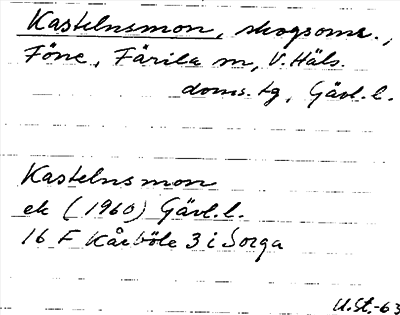 Kastelnsmon, skogsomr.,
Föne, Färila sn, V. Häls.
doms. tg, Gävl. l.
Kastelnsmon
ek (1960) Gävl. l.
16 F Kårböle 3 i Sorga
U.St.-63